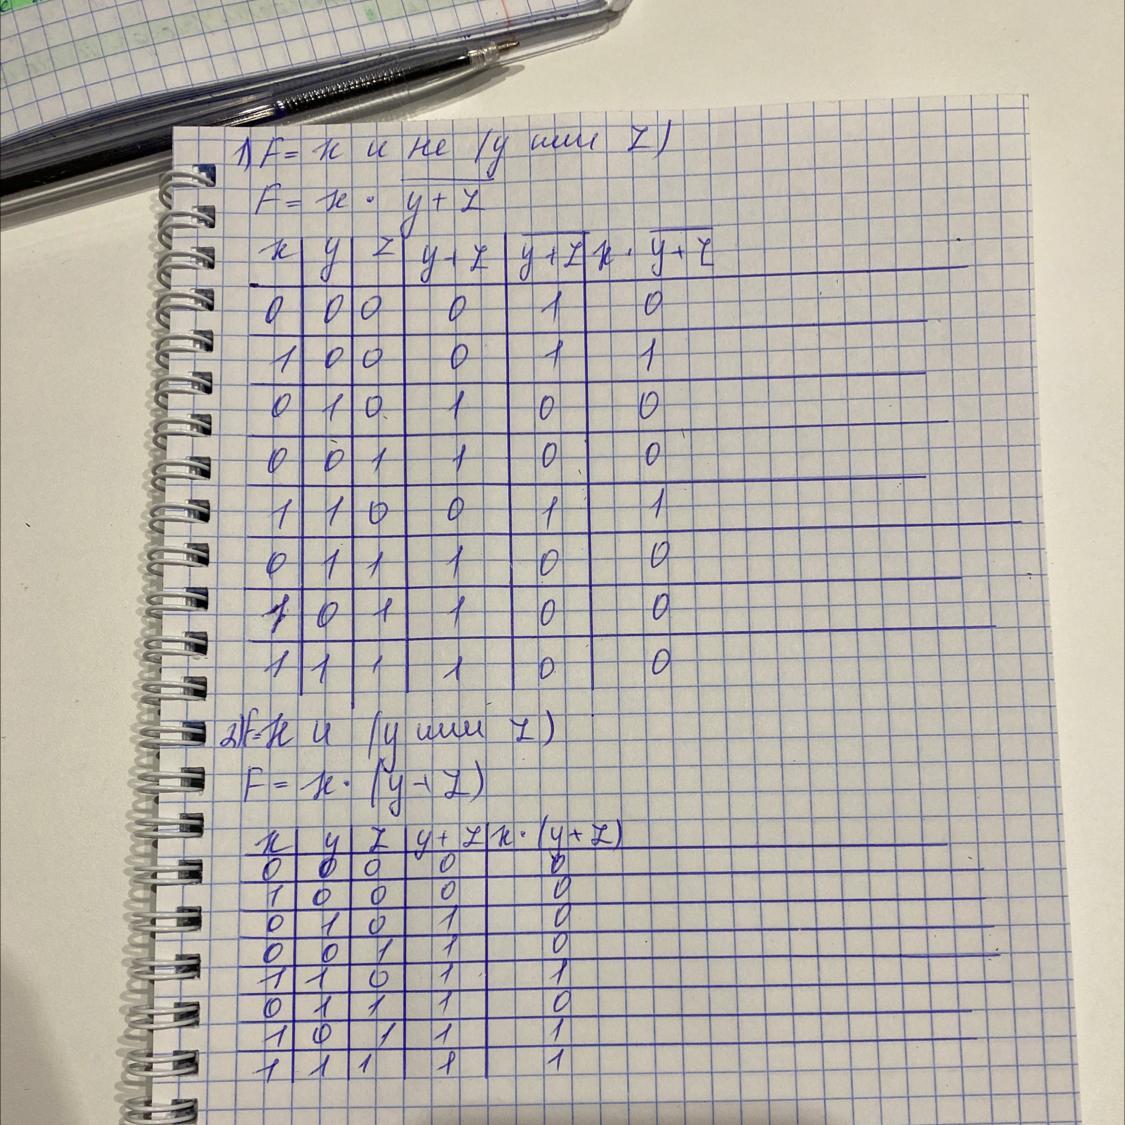 1) F = x и не (y или z)
F = x · \overline{y + z}
x | y | z | y + z | \overline{y + z} | x · \overline{y + z}
0 | 0 | 0 | 0 | 1 | 0
1 | 0 | 0 | 0 | 1 | 1
0 | 1 | 0 | 1 | 0 | 0
0 | 0 | 1 | 1 | 0 | 0
1 | 1 | 0 | 0 | 1 | 1
0 | 1 | 1 | 1 | 0 | 0
1 | 0 | 1 | 1 | 0 | 0
1 | 1 | 1 | 1 | 0 | 0
2) F = x и (y или z)
F = x · (y + z)
x | y | z | y + z | x · (y + z)
0 | 0 | 0 | 0 | 0
1 | 0 | 0 | 0 | 0
0 | 1 | 0 | 1 | 0
0 | 0 | 1 | 1 | 0
1 | 1 | 0 | 1 | 1
0 | 1 | 1 | 1 | 0
1 | 0 | 1 | 1 | 1
1 | 1 | 1 | 1 | 1